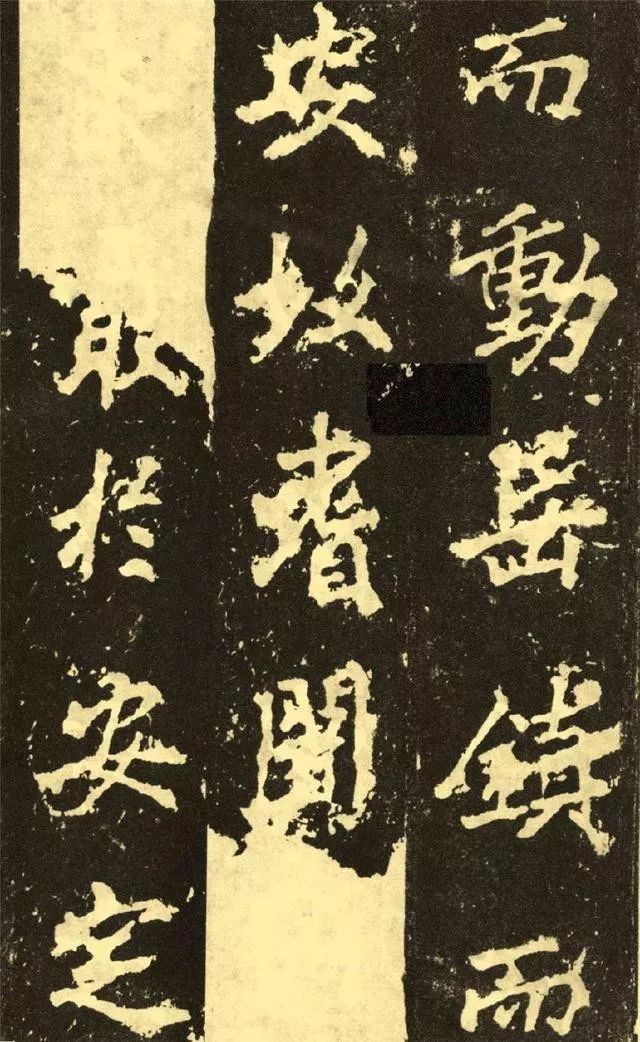 而動岳鎮而
安故聞
取於安定